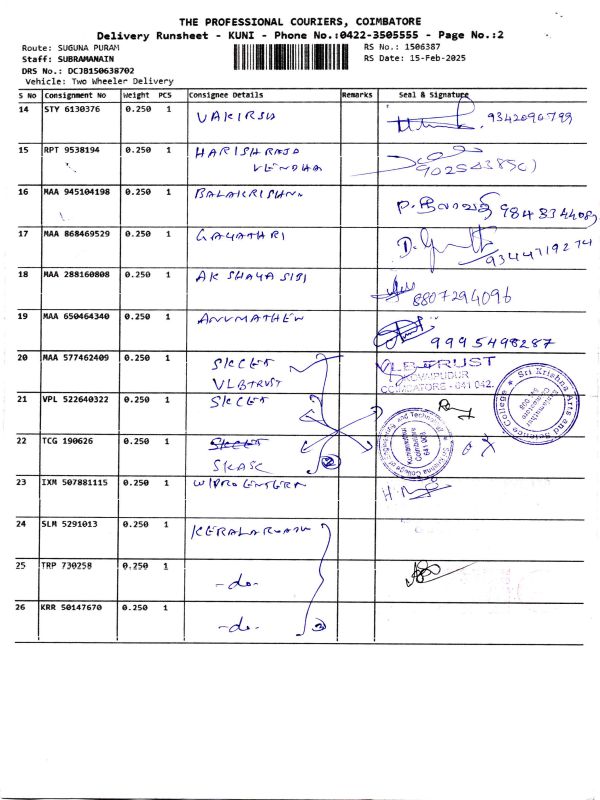 THE PROFESSIONAL COURIERS, COIMBATORE
Delivery Runsheet - KUNI - Phone No.:0422-3505555 - Page No.:2
Route: SUGUNA PURAM
RS No.: 1506387
Staff: SUBRAMANAIN
RS Date: 15-Feb-2025
DRS No.: DCJB150638702
Vehicle: Two Wheeler Delivery
S No Consignment No Weight PCS Consignee Details Remarks Seal & Signature
14 STY 6130376 0.250 1 9342090799
15 RPT 9538194 0.250 1 HARISH RAJA
VENDHA
16 MAA 945104198 0.250 1 BALAKRISHNA
17 MAA 868469529 0.250 1 GAYATHRI 9344719274
18 MAA 288160808 0.250 1 AKSHAYA SIBI 8807294096
19 MAA 650464340 0.250 1 ANUMATHEW 9995498287
20 MAA 577462409 0.250 1 SKCET VLB TRUST
VLB TRUST KOVAIPUDUR
COIMBATORE - 641 042.
21 VPL 522640322 0.250 1 SKCET
Sri Krishna Arts and Science College
22 TCG 190626 0.250 1 SKCET
SKASC
Sri Krishna College of Engineering And Technology
Kuniamuthur Coimbatore 641 008
23 IXM 507881115 0.250 1 WIPRO ENTERN
24 SLM 5291013 0.250 1
25 TRP 730258 0.250 1 -do-
26 KRR 50147670 0.250 1 -do-